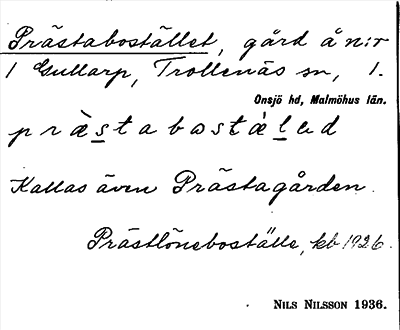 Prästabostället, gård å n:r
1 Gullarp, Trollenäs sn, 1.
Onsjö hd, Malmöhus län.
p r æ̀ s t a b ω s t æ̀ l e d
Kallas även Prästagården.
Prästlöneboställe, kb 1926.
NILS NILSSON 1936.